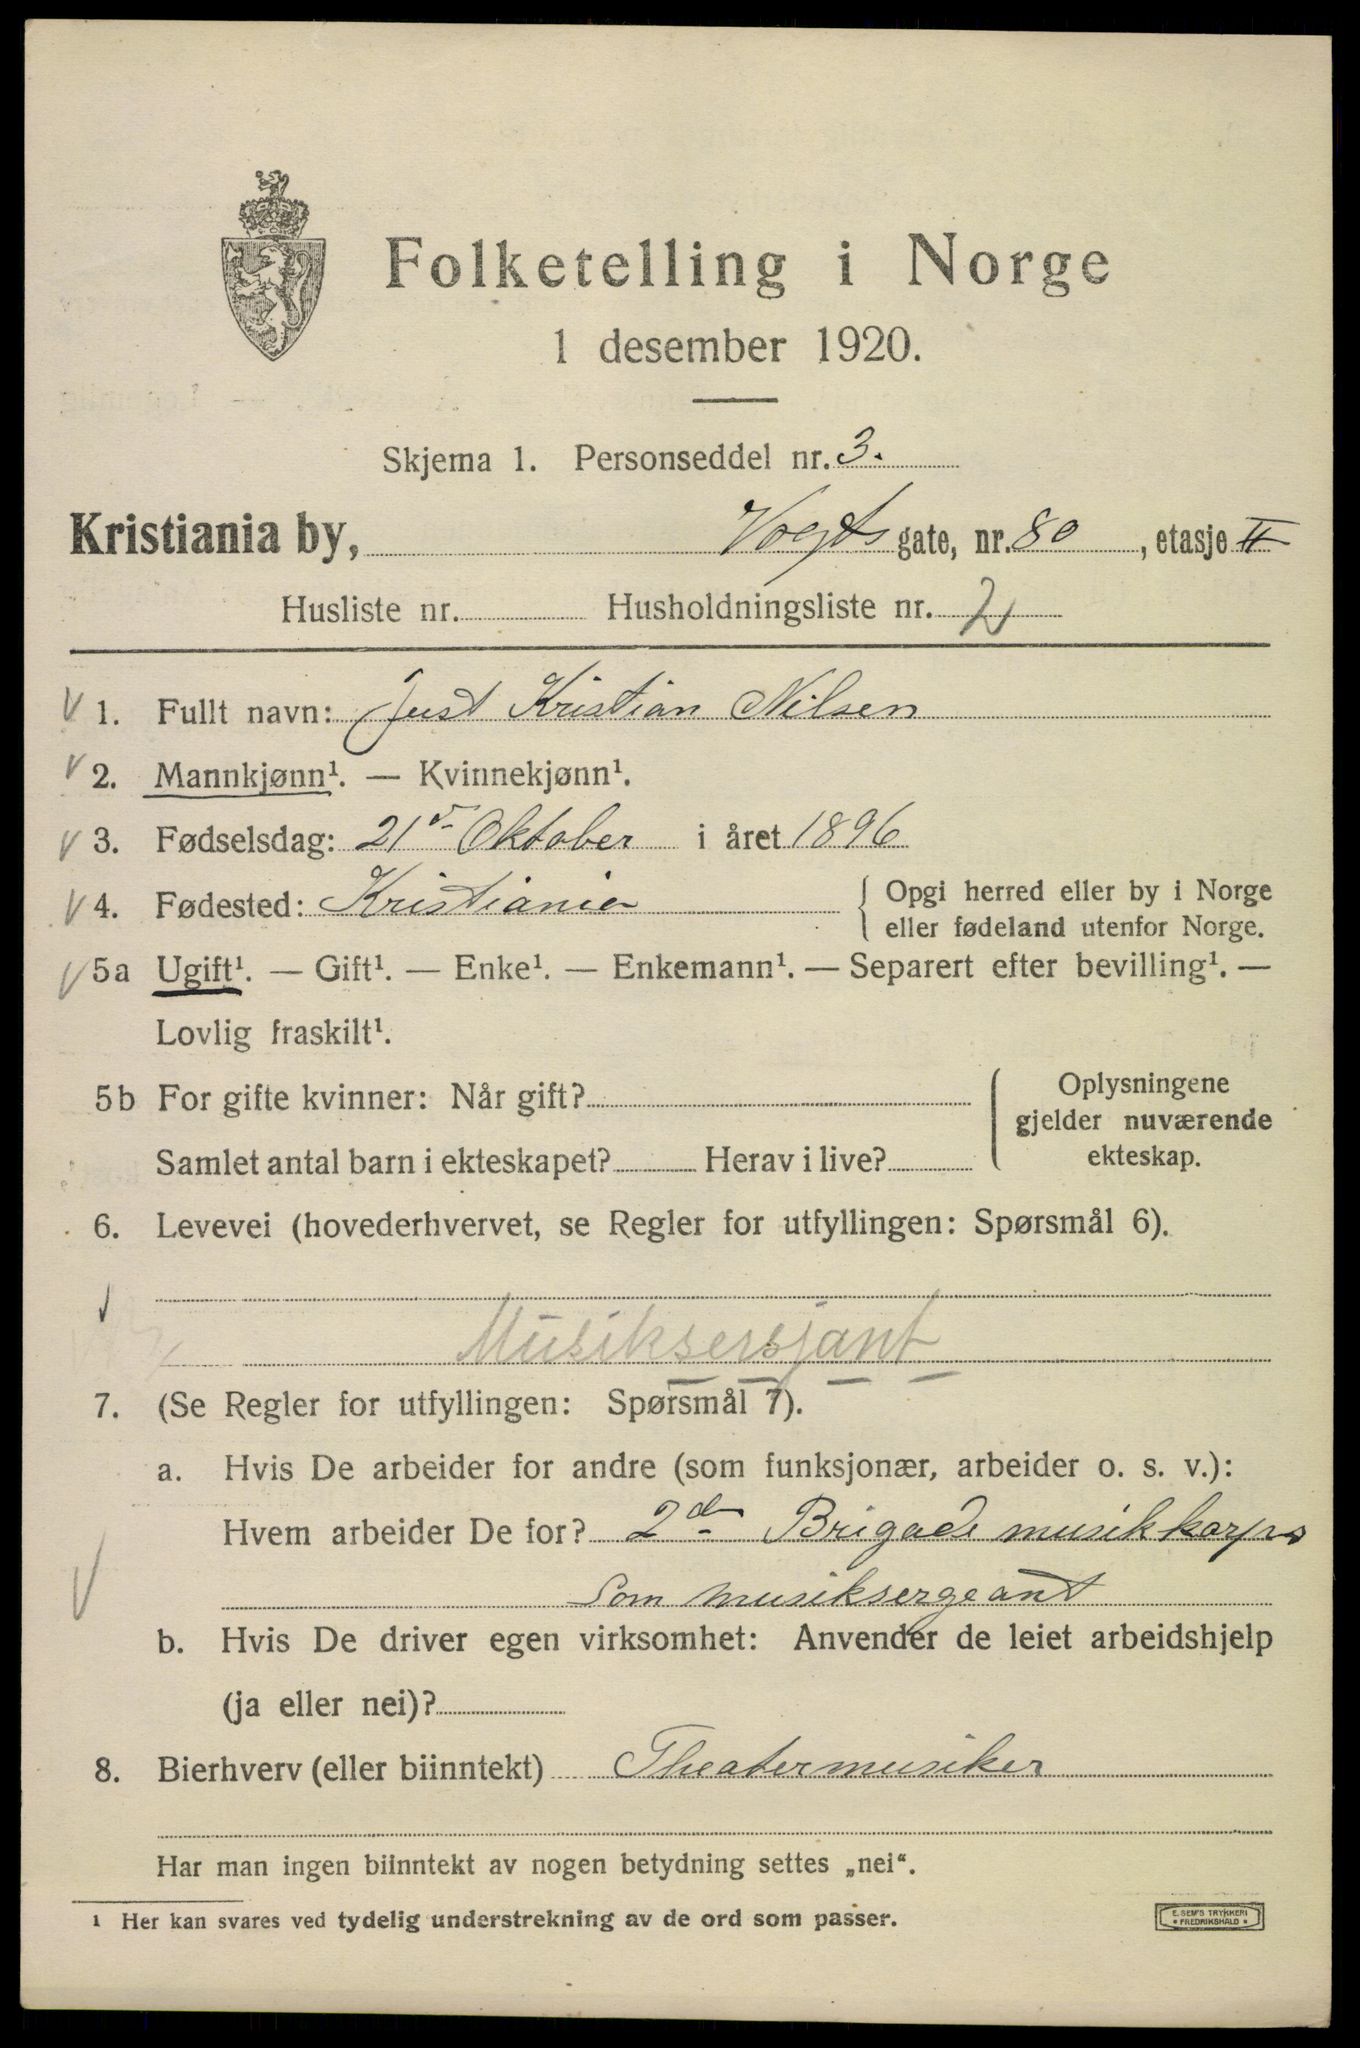 Folketelling i Norge
1 desember 1920.
Skjema 1. Personseddel nr. 3.
Kristiania by, Vogts gate, nr. 80, etasje II
Husliste nr. Husholdningsliste nr. 2
1. Fullt navn: Just Kristian Nilsen
2. Mannkjønn¹. — Kvinnekjønn¹.
3. Fødselsdag: 21de Oktober i året 1896
4. Fødested: Kristiania { Opgi herred eller by i Norge
eller fødeland utenfor Norge.
5a Ugift¹. — Gift¹. — Enke¹. — Enkemann¹. — Separert efter bevilling¹. —
Lovlig fraskilt¹.
5b For gifte kvinner: Når gift?
Samlet antal barn i ekteskapet? Herav i live?
Oplysningene
gjelder nuværende
ekteskap.
6. Levevei (hovederhvervet, se Regler for utfyllingen: Spørsmål 6).
Musiksersjant
7. (Se Regler for utfyllingen: Spørsmål 7).
a. Hvis De arbeider for andre (som funksjonær, arbeider o. s. v.):
Hvem arbeider De for? 2den Brigade musikkorps
som musiksergeant
b. Hvis De driver egen virksomhet: Anvender de leiet arbeidshjelp
(ja eller nei)?
8. Bierhverv (eller biinntekt) Theatermusiker
Har man ingen biinntekt av nogen betydning settes „nei“.
¹ Her kan svares ved tydelig understrekning av de ord som passer.
E. SEM'S TRYKKERI
• FREDRIKSHALD •